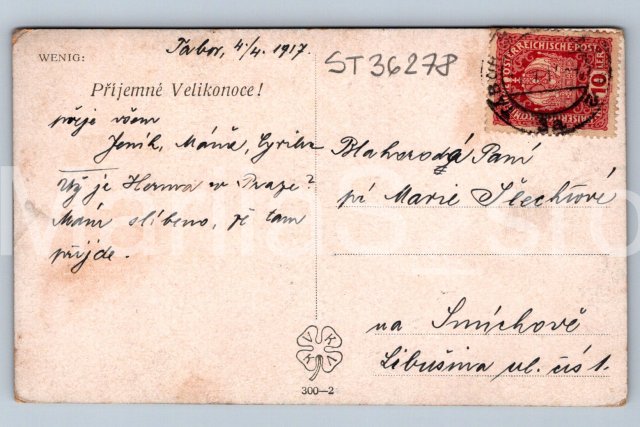 Tábor, 4/4. 1917.
ST36278
WENIG:
Příjemné Velikonoce!
přeje všem
Jeník, Máňa, Cyrilka
Již je Herma v Praze?
Mám slíbeno, že tam
přijde.
Blahorodá Paní
pí Marie Šlechtové
na Smíchově
Libušina ul. čís 1.
ÖSTERREICHISCHE POST
10
V K V K
300—2